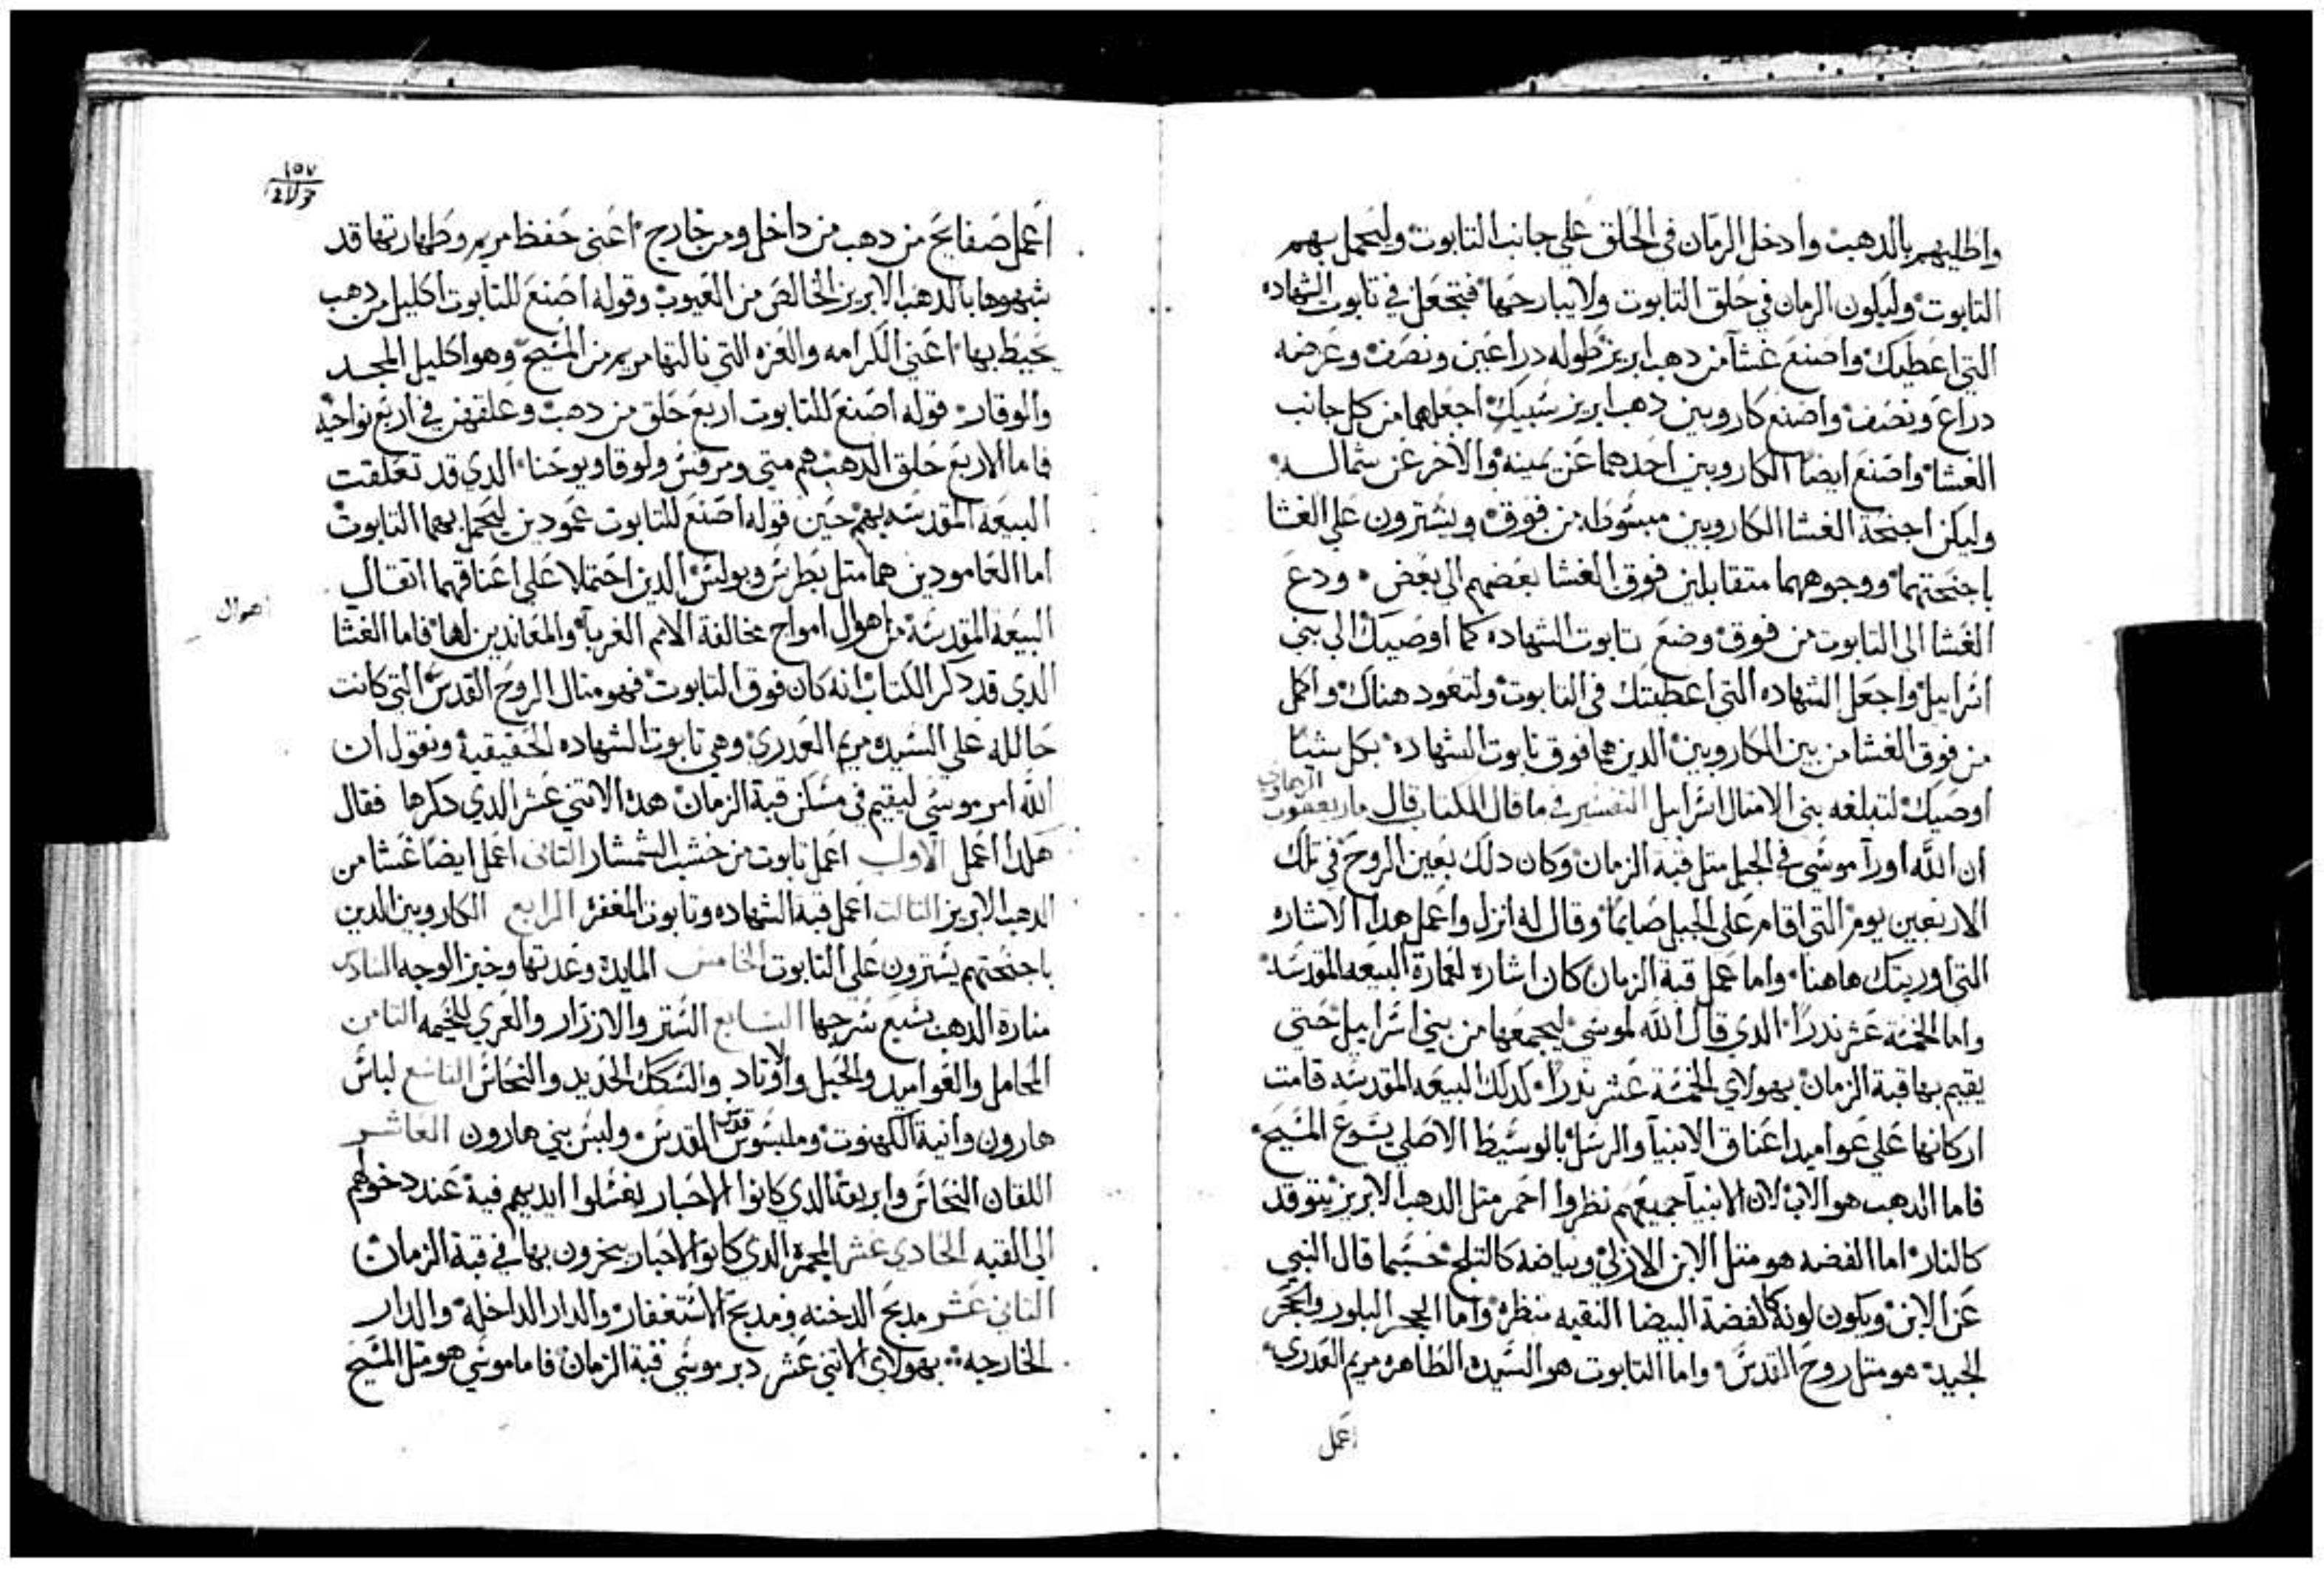 واطليهم بالدهب وادخل الرمان في الحلق علي جانب التابوت وليحمل بهم
التابوت وليكون الرمان في حلق التابوت ولا يبارحها فتجعل في تابوت الشهاده
التي اعطيك واصنع غشآ من دهب ابريز طوله دراعين ونصف وعرضه
دراع ونصف واصنع كاروبين دهب ابريز سبيك اجعلهما من كل جانب
الغشا واصنع ايضا الكاروبين احدهما عن يمينه والاخر عن شماله
وليكن اجنحة الغشا الكاروبين مبسوطه من فوق ويشترون علي الغشا
باجنحتهما ووجوههما متقابلين فوق الغشا بعضهم الي بعض ودع
الغشا الي التابوت من فوق وضع تابوت الشهاده كما اوصيك الي بني
اسراييل واجعل الشهاده التي اعطيتك في التابوت ولتعود هناك واكمل
من فوق الغشا من بين الكاروبين الدين هما فوق تابوت الشهاده بكل شيا
اوصيك لتبلغه بني الامتال اسراييل التفسير في ما قال الكتاب قال مار يعقوب الرهاوي
ان الله اورآ موسي في الجبل متل قبة الزمان وكان دلك بعين الروح في تلك
الاربعين يوم التي اقام علي الجبل صايماً وقال له انزل واعمل هدا الاشاره
التي اوريتك هاهنا واما عمل قبة الزمان كان اشاره لعمارة البيعه المقدسه
واما الخمسة عشر ندرا الدي قال الله لموسي ليجمعها من بني اسراييل حتي
يقيم بها قبة الزمان بهولاي الخمسة عشر ندراً كدلك البيعه المقدسه قامت
اركانها علي عواميد اعناق الانبيآ والرسل بالوسيط الاصلي يسوع المسيح
فاما الدهب هو الاب لان الانبيآ جميعهم نظروا احمر متل الدهب الابريز يتوقد
كالنار اما الفضه هو متل الابن الازلي وبياضه كالتلج حسبما قال النبي
عن الابن ويكون لونه كالفضة البيضا النقيه منظره واما الحجر البلور والحجر
الجيد هو متل روح القدس واما التابوت هو السيده الطاهره مريم العدري
اعمل
١٥٧
اعمل صفايح من دهب من داخل ومن خارج اعني حفظ مريم وطهارتها قد
شبهوها بالدهب الابريز الخالص من العيوب وقوله اصنع للتابوت اكليل من دهب
يحيط بها اعني الكرامه والعزه التي نالتها مريم من المسيح وهو اكليل المجد
والوقار قوله اصنع للتابوت اربع حلق من دهب وعلقهن في اربع نواحيه
فاما الاربع حلق الدهب هم متي ومرقس ولوقا ويوحنا الدي قد تعلقت
البيعه المقدسه بهم حين قوله اصنع للتابوت عمودين ليحمل بهما التابوت
اما العامودين هما متل بطرس وبولس الدين احتملا علي اعناقهما اتقال
البيعه المقدسه من اهوال امواج مخالفة الامم الغربآ والمعاندين لها فاما الغشا
اهوال
الدي قد دكر الكتاب انه كان فوق التابوت فهو متال الروح القدس التي كانت
حالله علي السيده مريم العدري وهي تابوت الشهاده الحقيقيه ونقول ان
الله امر موسي ليقيم في مسكن قبة الزمان هده الاتني عشر الدي دكرها فقال
هكدا اعمل الاول اعمل تابوت من خشب الشمشار التاني اعمل ايضا غشا من
الدهب الابريز التالت اعمل قبة الشهاده وتابوت المغفره الرابع الكاروبين الدين
باجنحتهم يشترون علي التابوت الخامس المايده وعدتها وخبز الوجه السادس
مناره الدهب بسبع سرجها السابع الستر والازرار والعري للخيمه التامن
المحامل والعواميد والحبل والاوتاد والسكك الحديد والنحاس التاسع لباس
هارون وانية الكهنوت وملبوس قدس المقدس ولبس بني هارون العاشر
اللقان النحاس وابريقه الدي كانوا الاحبار يغسلوا ايديهم فيه عند دخولهم
الي القبه الحادي عشر المجمره الدي كانوا الاحبار يبخرون بها في قبة الزمان
التاني عشر مدبح الدخنه ومدبح الاستغفار والدار الداخله والدار
الخارجه بهولاي الاتني عشر دبر موسي قبة الزمان فاما موسي هو متل المسيح